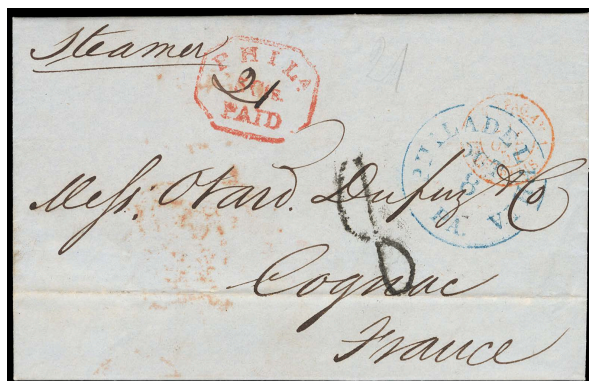 Steamer
21
PHILA
21
PAID
PHILADEL
OCT
8
PA.
Mess. Otard. Dupuy & Co
Cognac
France